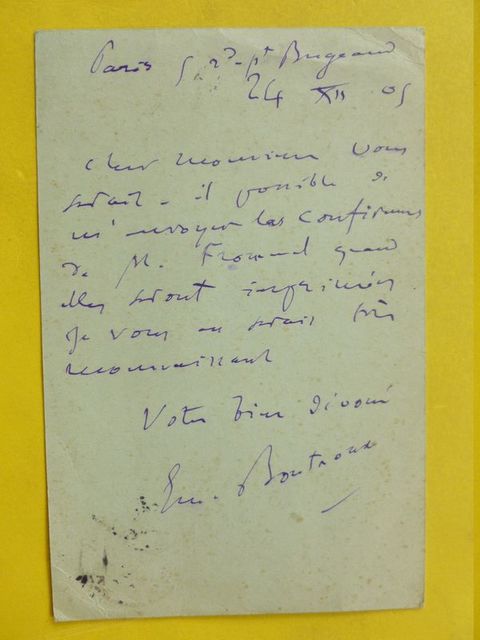 Paris 5 rd-pt Bugeaud
24 XII 05
Cher Monsieur Vous
serait-il possible de
m'envoyer les Conférences
de M. Frommel quand
elles seront imprimées
Je vous en serais très
reconnaissant
Votre bien dévoué
Em. Boutroux